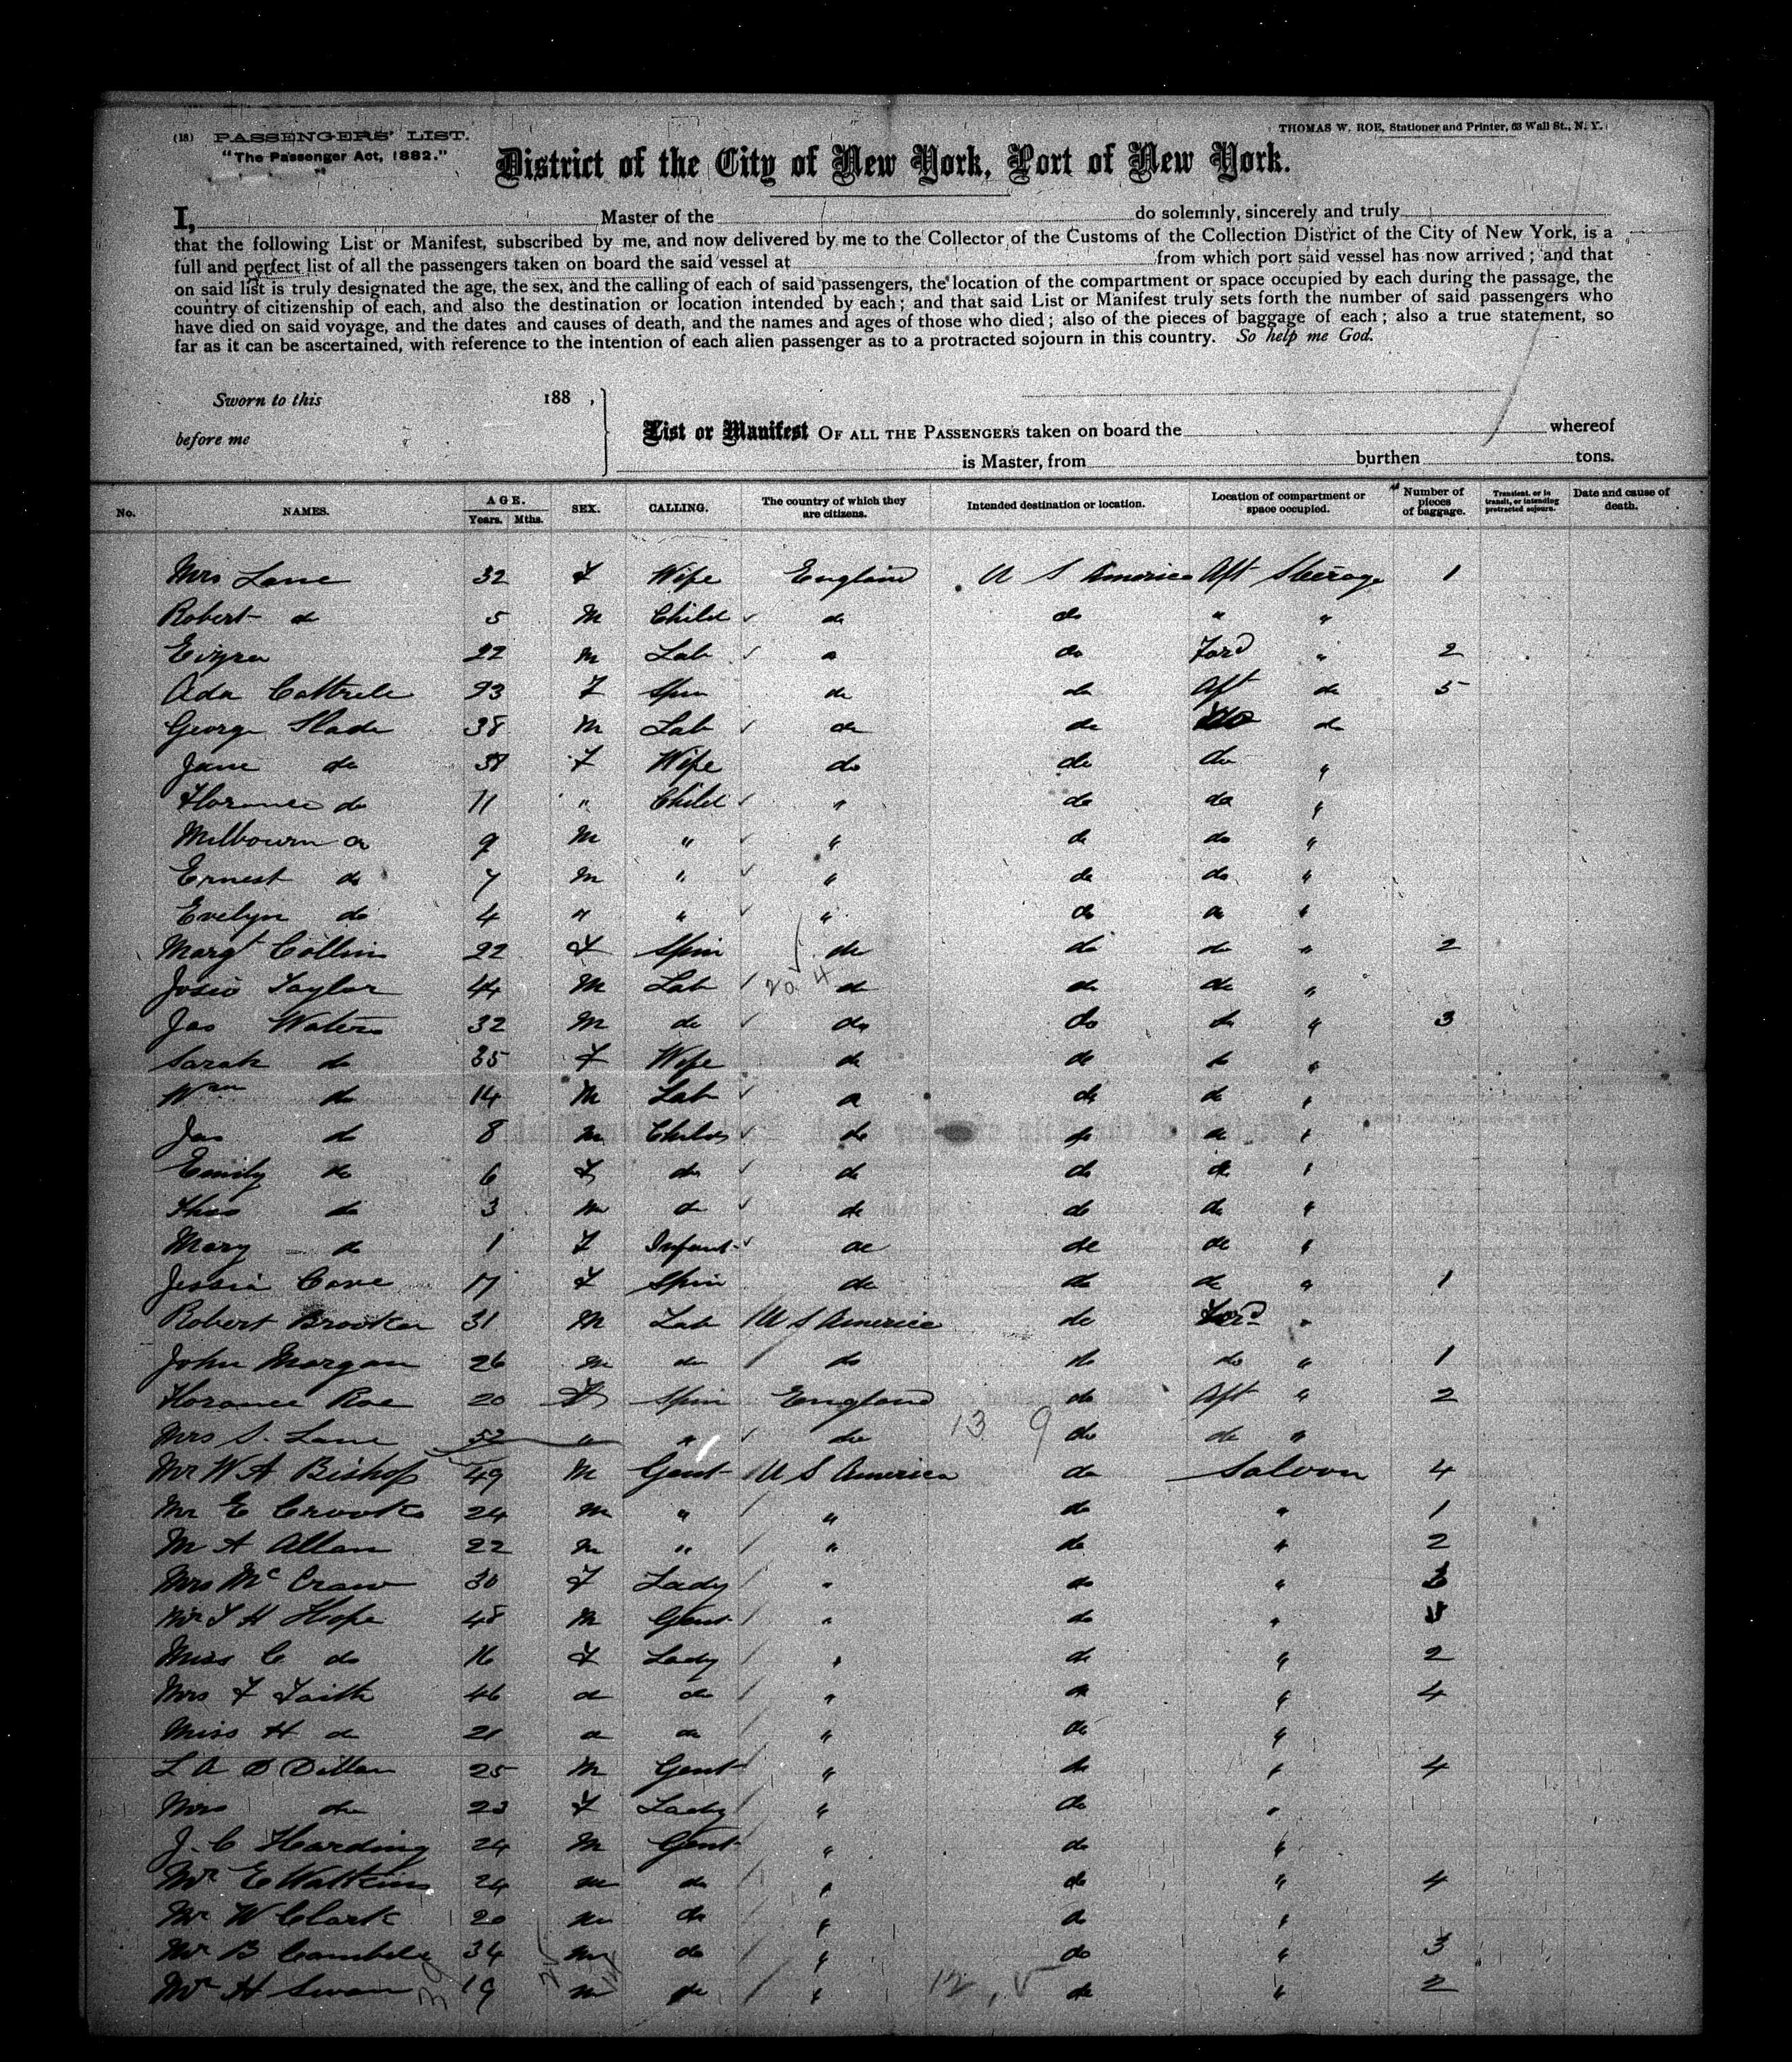 (18) PASSENGERS' LIST.
THOMAS W. ROE, Stationer and Printer, 63 Wall St., N. Y.
"The Passenger Act, 1882."
District of the City of New York, Port of New York.
I, Master of the do solemnly, sincerely and truly
that the following List or Manifest, subscribed by me, and now delivered by me to the Collector of the Customs of the Collection District of the City of New York, is a
full and perfect list of all the passengers taken on board the said vessel at from which port said vessel has now arrived; and that
on said list is truly designated the age, the sex, and the calling of each of said passengers, the location of the compartment or space occupied by each during the passage, the
country of citizenship of each, and also the destination or location intended by each; and that said List or Manifest truly sets forth the number of said passengers who
have died on said voyage, and the dates and causes of death, and the names and ages of those who died; also of the pieces of baggage of each; also a true statement, so
far as it can be ascertained, with reference to the intention of each alien passenger as to a protracted sojourn in this country. So help me God.
Sworn to this 188 ,
before me
List or Manifest OF ALL THE PASSENGERS taken on board the whereof
is Master, from burthen tons.
No. NAMES. AGE. Years. Mths. SEX. CALLING. The country of which they are citizens. Intended destination or location. Location of compartment or space occupied. Number of pieces of baggage. Transient, or in transit, or intending protracted sojourn. Date and cause of death.
Mrs Lane 32 F Wife England U S America Aft Steerage 1
Robert do 5 M Child do do " "
22 M Lab do do Ford " 2
Ada Cottrell 23 F Spin do do Aft do 5
George Slade 38 M Lab do do do do
Jane do 38 F Wife do do do "
Florance do 11 " Child " do do "
Milbourn do 9 M " " do do "
Ernest do 7 M " " do do "
Evelyn do 4 " " " do do "
Margt Collins 22 F Spin do do do " 2
Josie Taylor 44 M Lab do do do "
Jas Waters 32 M do do do do " 3
Sarah do 35 F Wife do do do "
Wm do 14 M Lab do do do "
Jas do 8 M Child do do do "
Emily do 6 F do do do do "
Thos do 3 M do do do do "
Mary do 1 F Infant do do do "
Jessie Cave 17 F Spin do do do " 1
Robert Brooker 31 M Lab U S America do Ford "
John Morgan 26 M do do do do " 1
Florance Roe 20 F Spin England do Aft " 2
Mrs S. Lane 52 " " do do do "
13 9
Mr W A Bishop 49 M Gent U S America do Saloon 4
Mr E Crooks 24 M " " do " 1
M A Allan 22 M " " do " 2
Mrs Mc Craw 30 F Lady " do " 3
Mr T H Hope 48 M Gent " do "
Miss C do 16 F Lady " do " 2
Mrs F Faith 46 do do " do " 4
Miss H do 21 do do " do "
L A D Dillon 25 M Gent " do " 4
Mrs do 23 F Lady " do "
J. C Harding 24 M Gent " do "
Mr E Watkins 24 M do " do " 4
Mr W Clark 20 M do " do "
Mr B 34 M do " do " 3
Mr H Swan 19 M do " do " 2